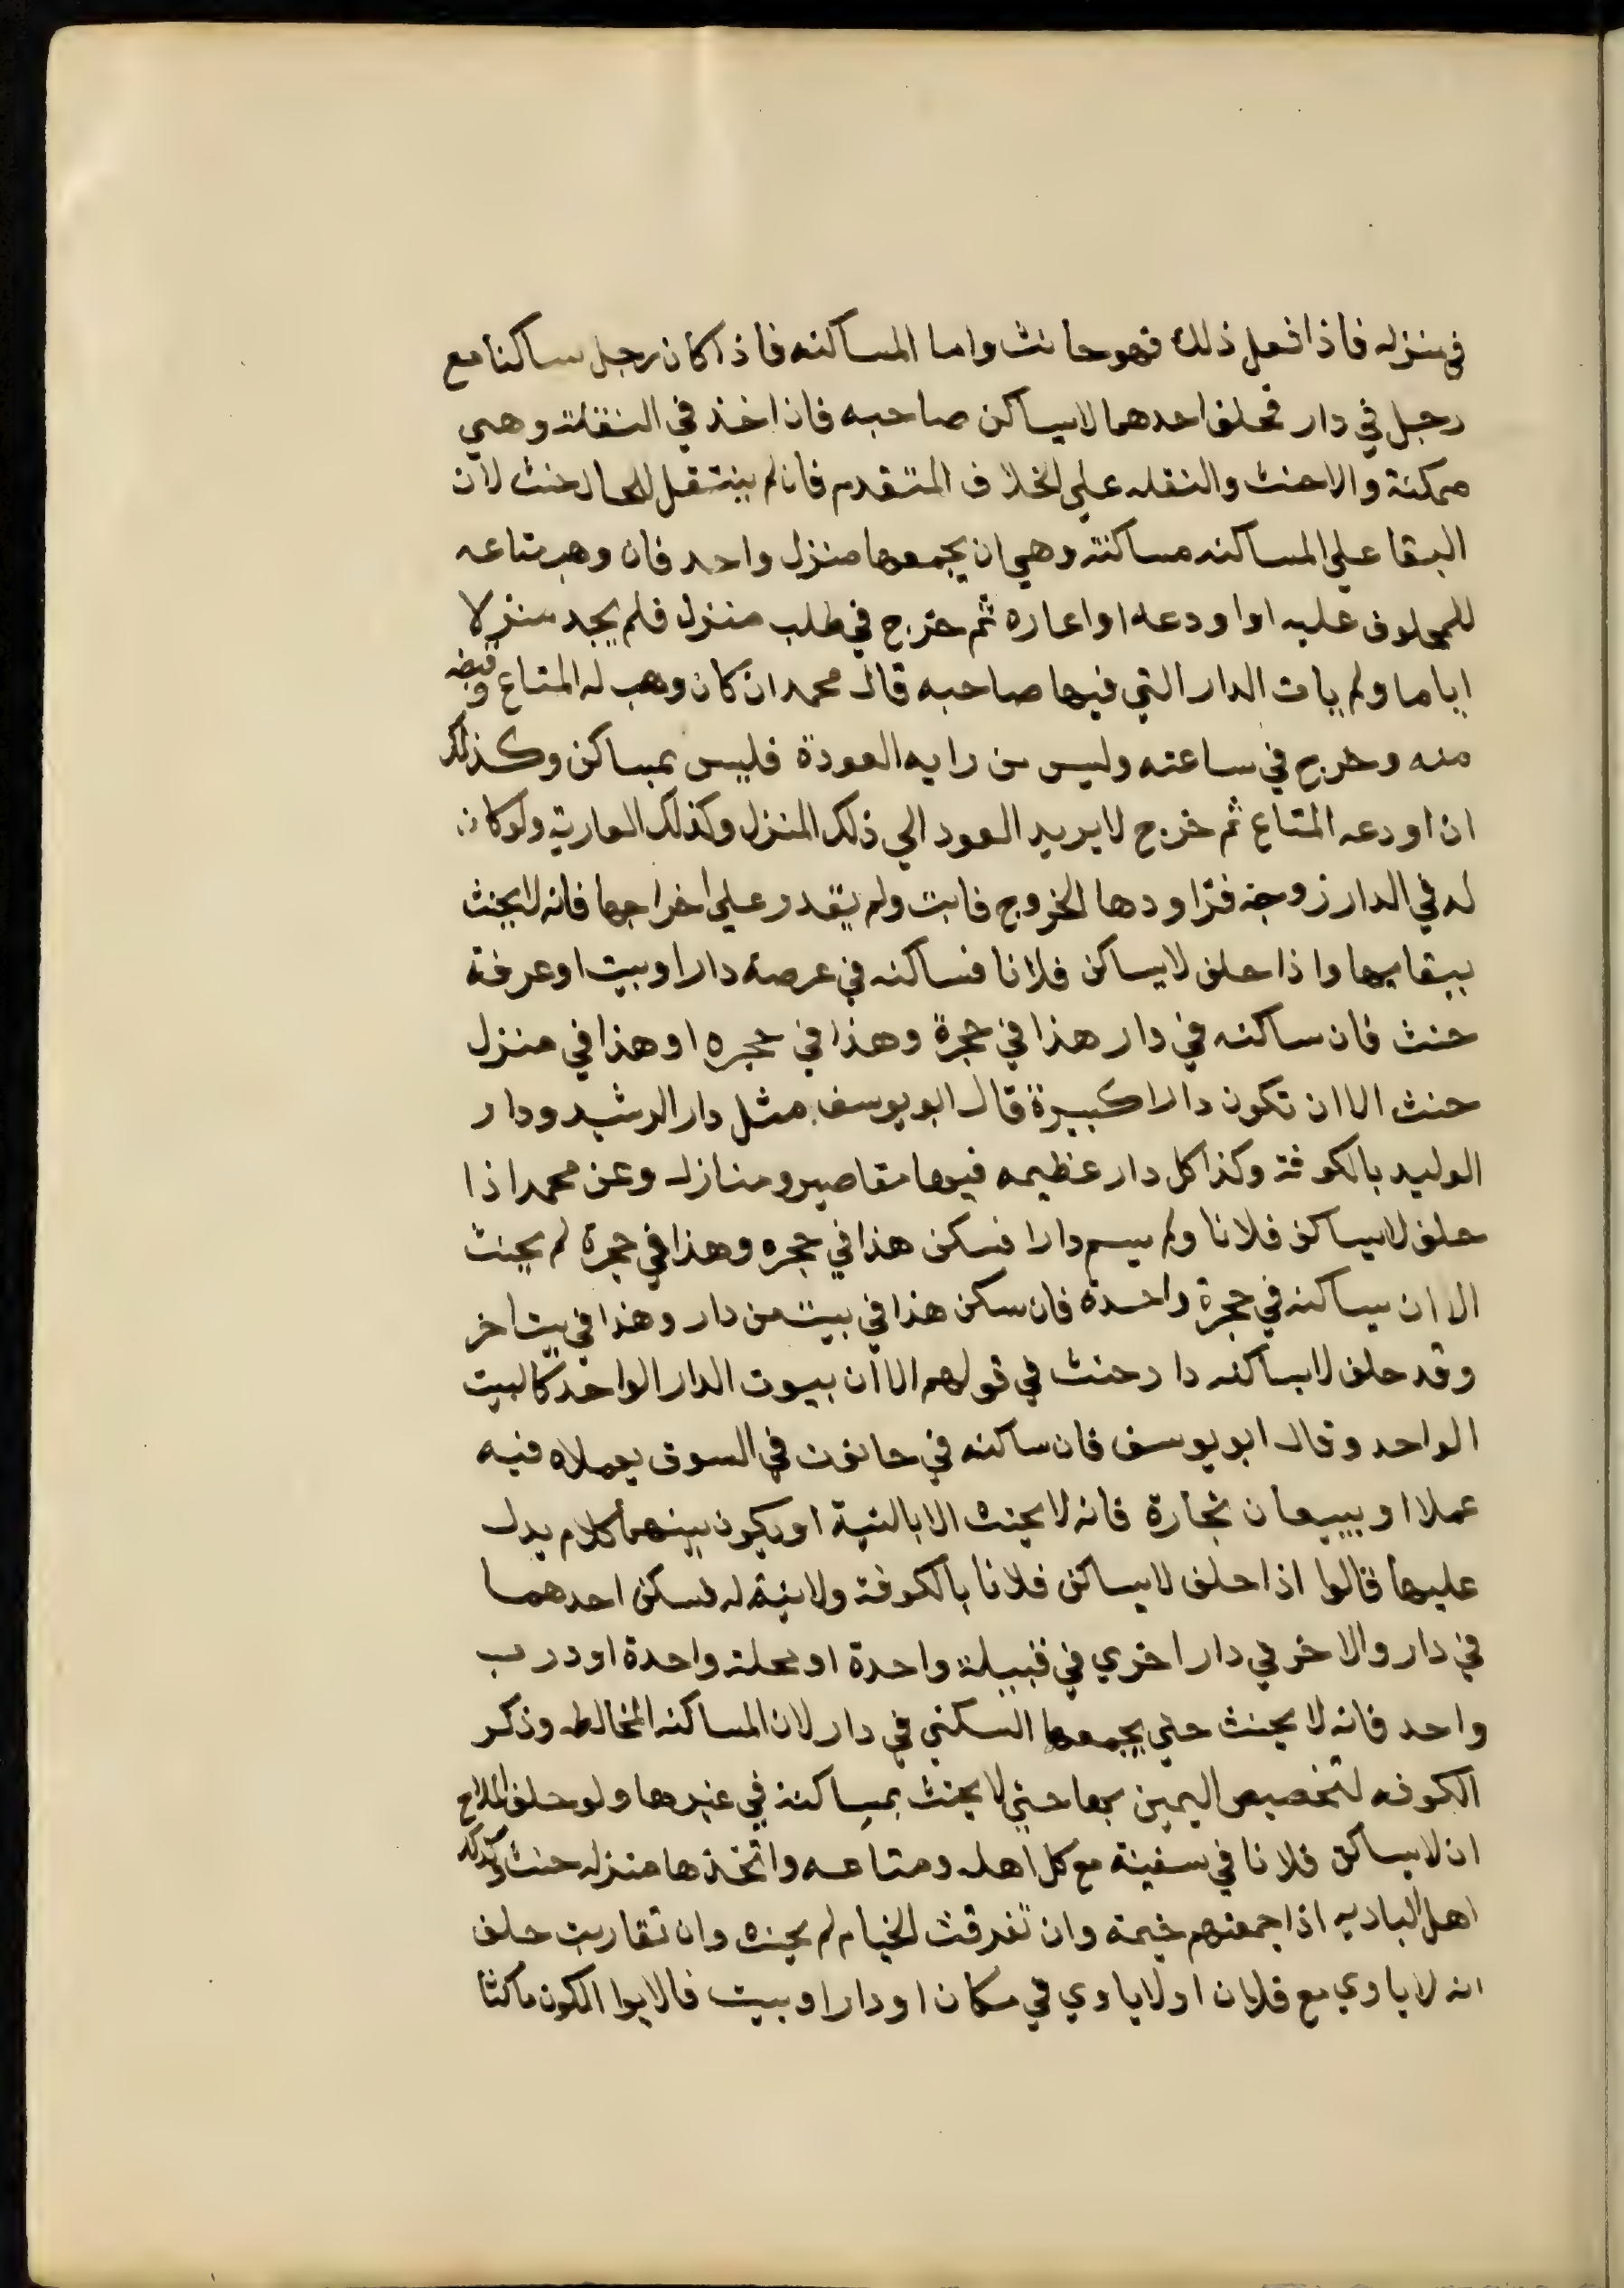 في منزله فاذا فعل ذلك فهو حانث واما المساكنه فاذا كان رجل ساكنا مع
رجل في دار فحلف احدهما لا يساكن صاحبه فان اخذ في النقلة وهي
ممكنة والا حنث والنقله على الخلاف المتقدم فان لم ينتقل للحال حنث لان
البقا علي المساكنه مساكنة وهي ان يجمعها منزل واحد فان وهب متاعه
للمحلوف عليه او اودعه او اعاره ثم خرج في طلب منزل فلم يجد منزلا
اياما ولم يات الدار التي فيها صاحبه قال محمد ان كان وهب له المتاع وقبضه
منه وخرج في ساعته وليس من رايه العودة فليس بمساكن وكذلك
ان اودعه المتاع ثم خرج لا يريد العود الي ذلك المنزل وكذلك العارية ولو كان
له في الدار زوجة فراودها الخروج فابت ولم يقدر علي اخراجها فانه لا يحنث
ببقايها واذا حلف لا يساكن فلانا فساكنه في عرصة دار او بيت او غرفة
حنث فان ساكنه في دار هذا في حجرة وهذا في حجره او هذا في منزل
حنث الا ان تكون دارا كبيرة قال ابو يوسف مثل دار الرشيد ودار
الوليد بالكوفة وكذا كل دار عظيمه فيها مقاصير ومنازل وعن محمد اذا
حلف لا يساكن فلانا ولم يسم دارا فسكن هذا في حجره وهذا في حجرة لم يحنث
الا ان يساكنه في حجرة واحدة فان سكن هذا في بيت من دار وهذا في بيت اخر
وقد حلف لا يساكنه دار حنث في قولهم الا ان بيوت الدار الواحد كالبيت
الواحد وقال ابو يوسف فان ساكنه في حانوت في السوق يعملاه فيه
عملا او يبيعان تجارة فانه لا يحنث الا بالنية او يكون بينهما كلام يدل
عليها قالوا اذا حلف لا يساكن فلانا بالكوفة ولا نية له فسكن احدهما
في دار والاخر في دار اخري في قبيلة واحدة او محلة واحدة او درب
واحد فانه لا يحنث حتي يجمعها السكني في دار لان المساكنه المخالطه وذكر
الكوفه لتخصيص اليمين بها حتي لا يحنث بمساكنة في غيرها ولو حلف الملاح
ان لا يساكن فلانا في سفينة مع كل اهله ومتاعه واتخذها منزله حنث وكذلك
اهل الباديه اذا جمعتهم خيمة وان تفرقت الخيام لم يحنث وان تقاربت حلف
انه لا ياوي مع فلان او لا ياوي في مكان او دار او بيت فالايوا الكون ماكثا